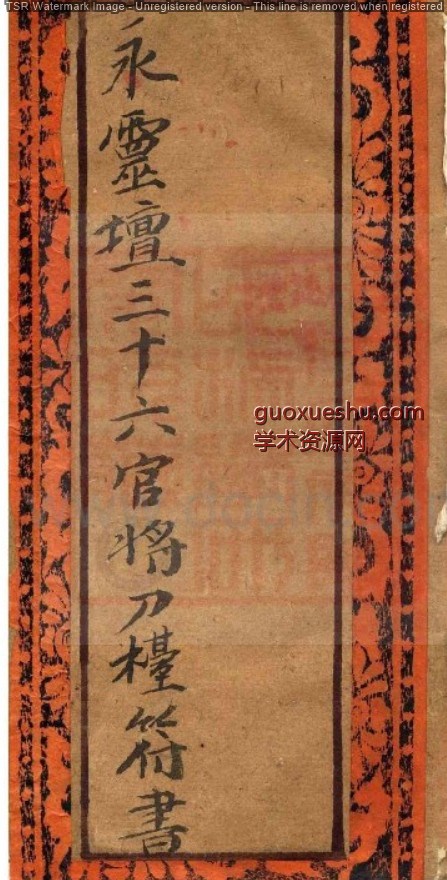 TSR Watermark Image - Unregistered version - This line is removed when registered
永靈壇三十六官將刀檯符書
guoxueshu.com
学术资源网